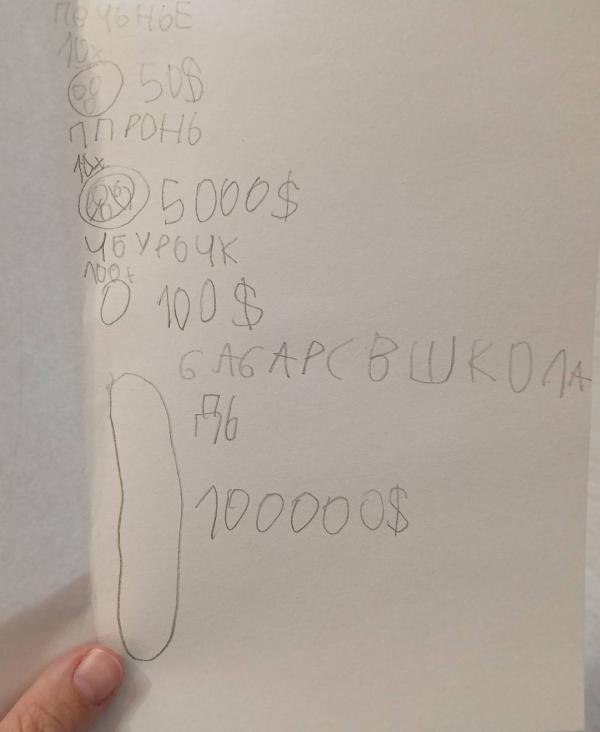 ПЕЧЬНЬЕ
10х
50$
ППРОНЬ
10х
5000$
ЧБУРОЧК
100х
100$
БАБАРС В ШКОЛА
ДЬ
100000$